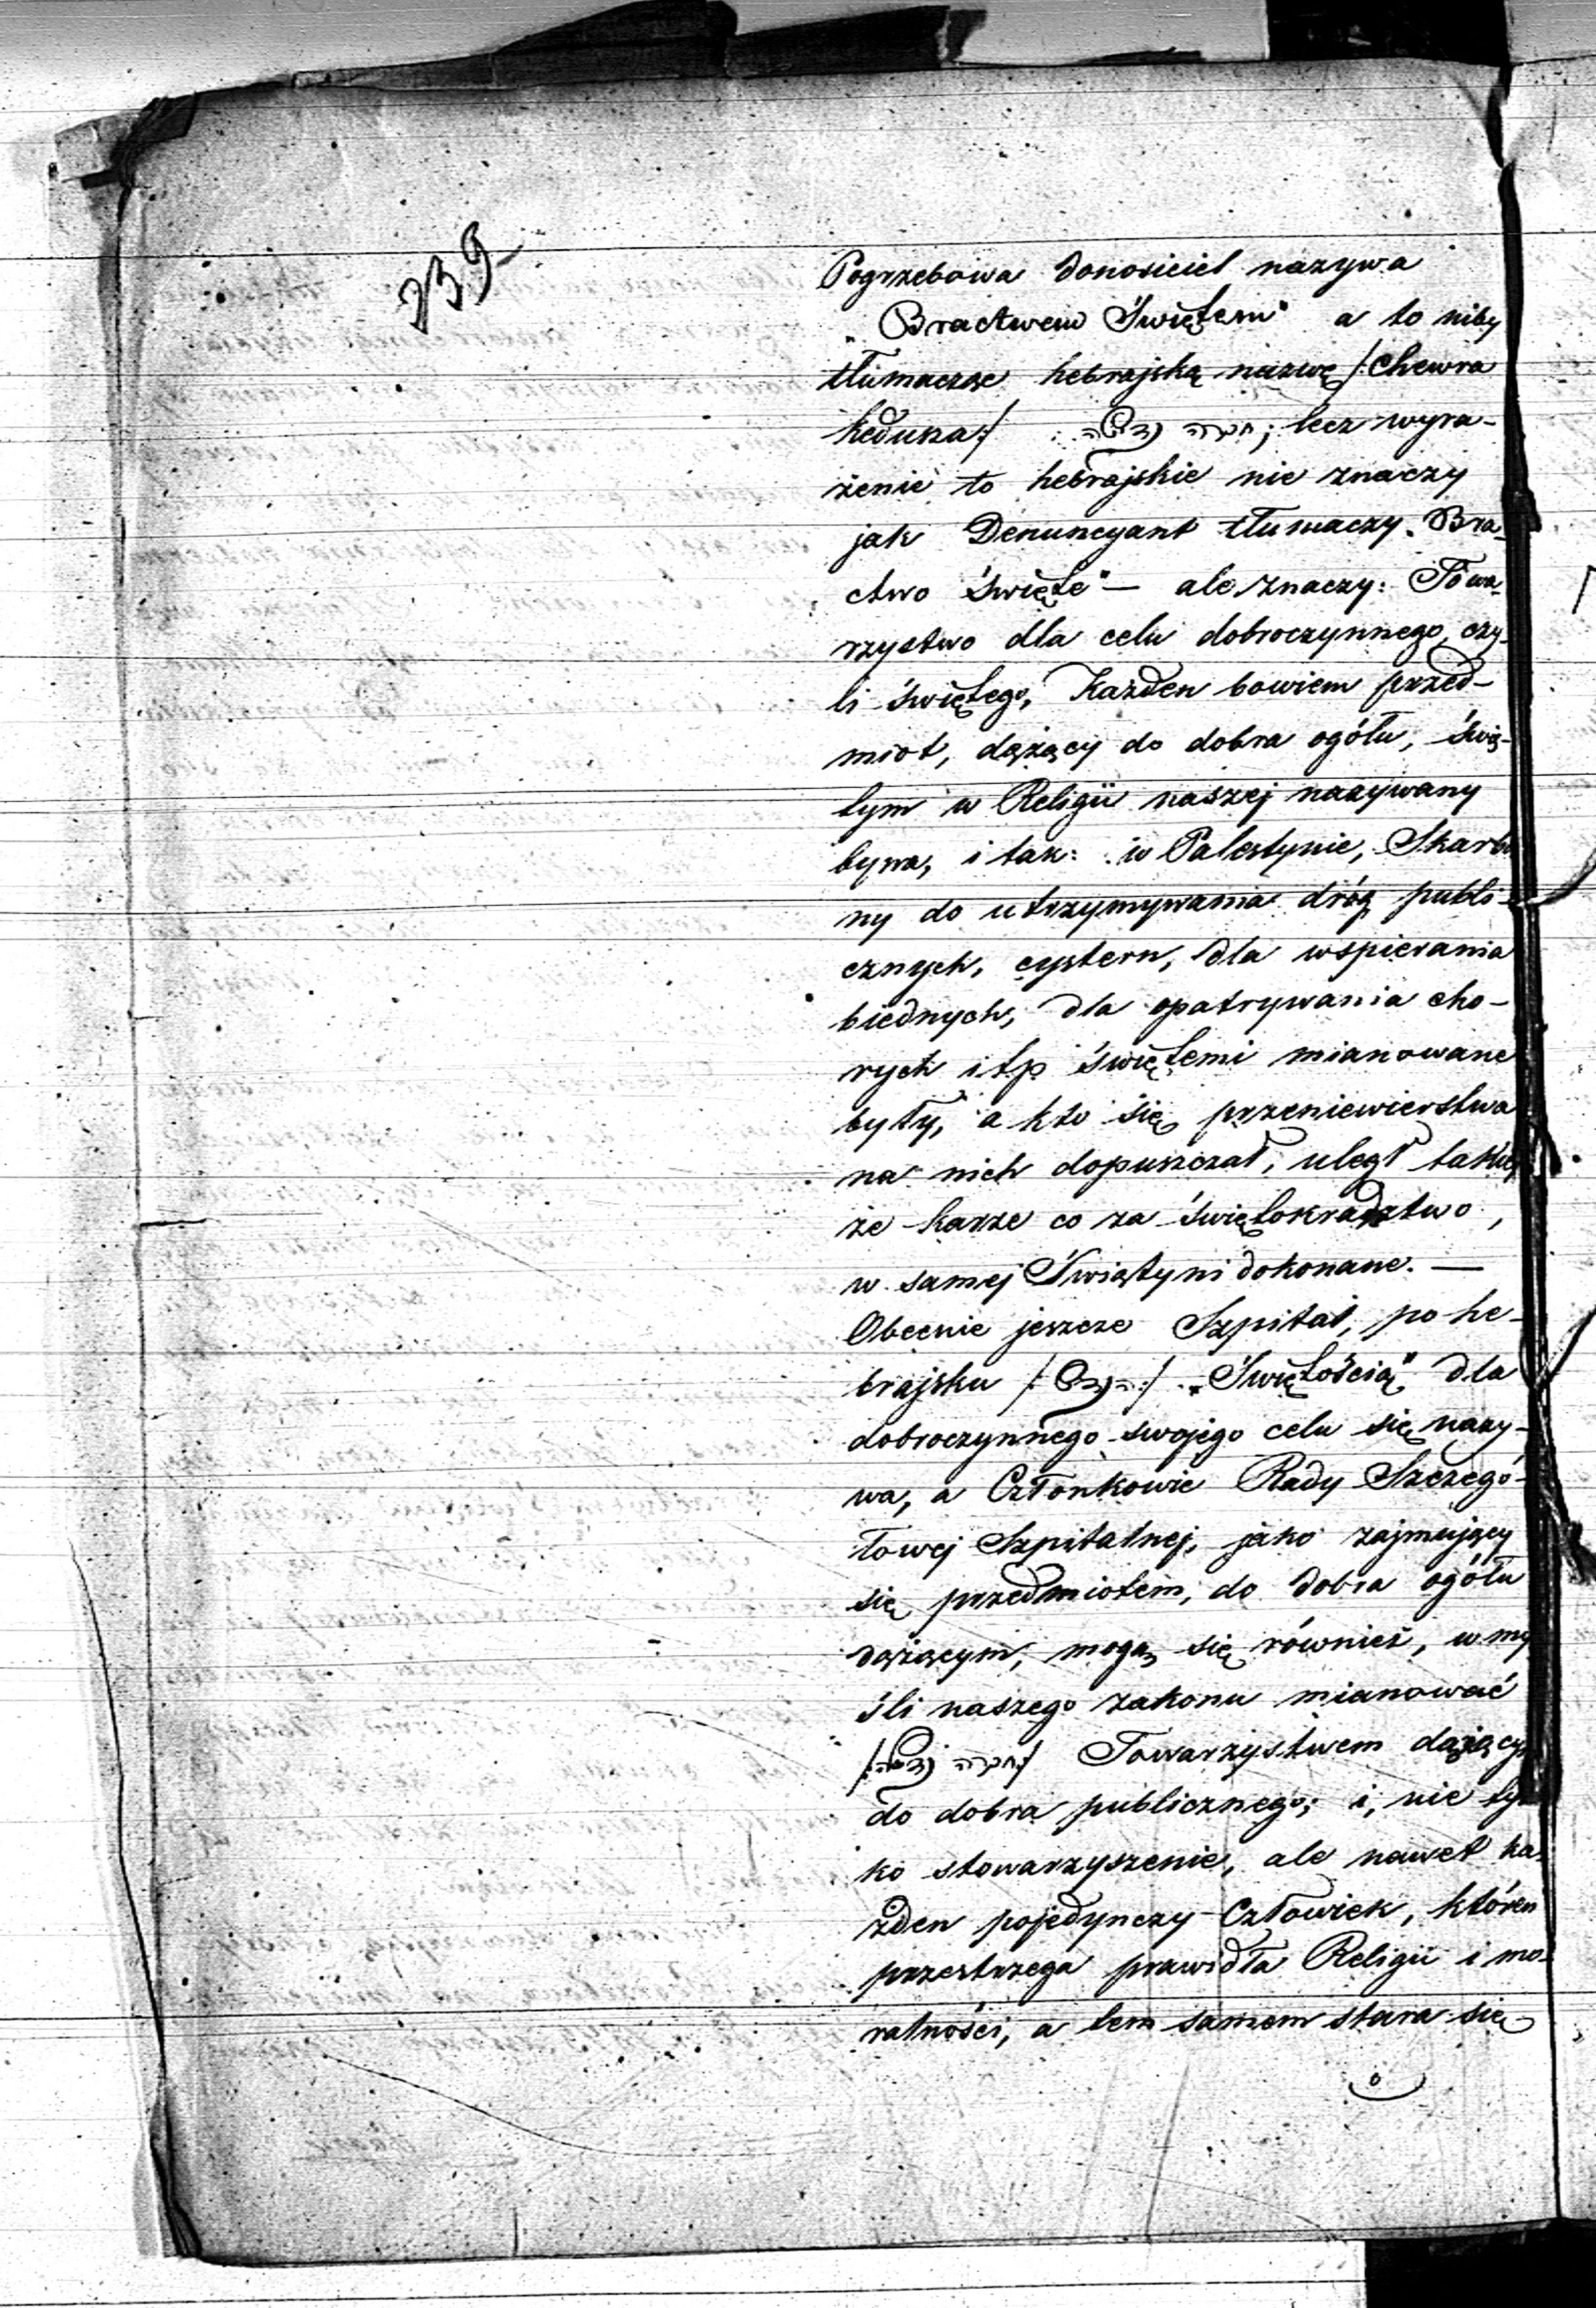 239
Pogrzebowa donosiciel nazywa
„Bractwem Świętem" a to niby
tłumacząc hebrajską nazwę /:Chewra
kedusza:/ חברה קדושה; lecz wyra-
żenie to hebrajskie nie znaczy
jak Denuncyant tłumaczy „Bra-
ctwo święte" — ale znaczy: Towa-
rzystwo dla celu dobroczynnego, czy-
li świętego, Każden bowiem przed-
miot, dążący do dobra ogółu, świę-
tym w Religii naszej nazywany
bywa, i tak: w Palestynie, Skarbo
ny do utrzymywania dróg publi-
cznych, cystern, dla wspierania
biednych, dla opatrywania cho-
rych itp świętemi mianowane
były, a kto się przeniewierstwa
na nich dopuszczał, uległ takiej
że karze co za świętokradztwo,
w samej Świątyni dokonane. —
Obecnie jeszcze Szpital, po he-
brajsku /: הקדש :/ „Świętością" dla
dobroczynnego swojego celu się nazy-
wa, a Członkowie Rady Szczegó-
łowej Szpitalnej, jako zajmujący
się przedmiotem, do dobra ogółu
dążącym, mogą się również, w my
śli naszego zakonu mianować
/: חברה קדושה :/ Towarzystwem dążącym
do dobra publicznego; i, nie tyl
ko stowarzyszenie, ale nawet ka-
żden pojedynczy Człowiek, któren
przestrzega prawidła Religii i mo-
ralności, a tem samem stara się